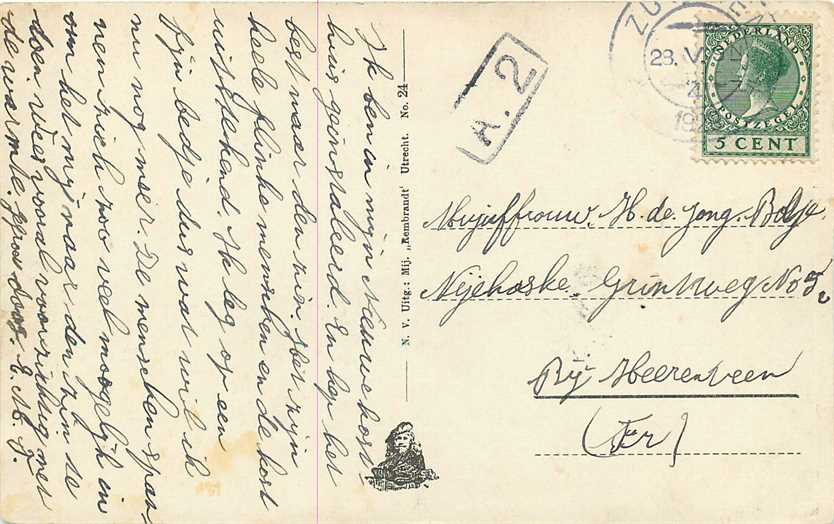 Ik ben in mijn Nieuwe kost-
huis geinstaleerd. En ben het
best naar den zin. Het zijn
heele flinke menschen en de kost
uitstekend. Ik lag op een
fijn bedje dus wat wil ik
nu nog meer. De menschen span-
nen zich zoo veel mogelijk in
om het mij naar den zin te
doen wees vooral voorzichtig met
de warmte. groet door. E. M. J.
N. V. Uitg.: Mij. „Rembrandt' Utrecht. No. 24
A. 2
23. V
NEDERLAND
POSTZEGEL
5 CENT
Mejuffrouw. H. de Jong-
Nijehaske Grintweg No 5
Bij Heerenveen
(Fr)